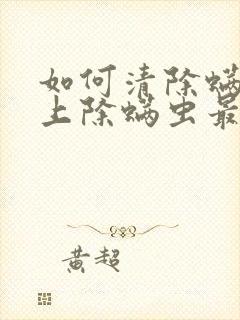 如何清除螨
上除螨虫最
黄超